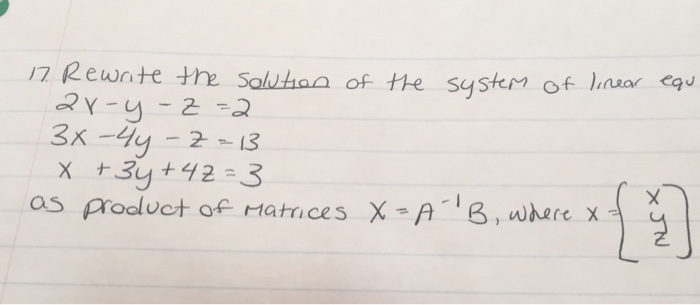 17 Rewrite the solution of the system of linear equ
2x - y - z = 2
3x - 4y - z = 13
x + 3y + 4z = 3
as product of Matrices X = A⁻¹B, where x = [x y z]